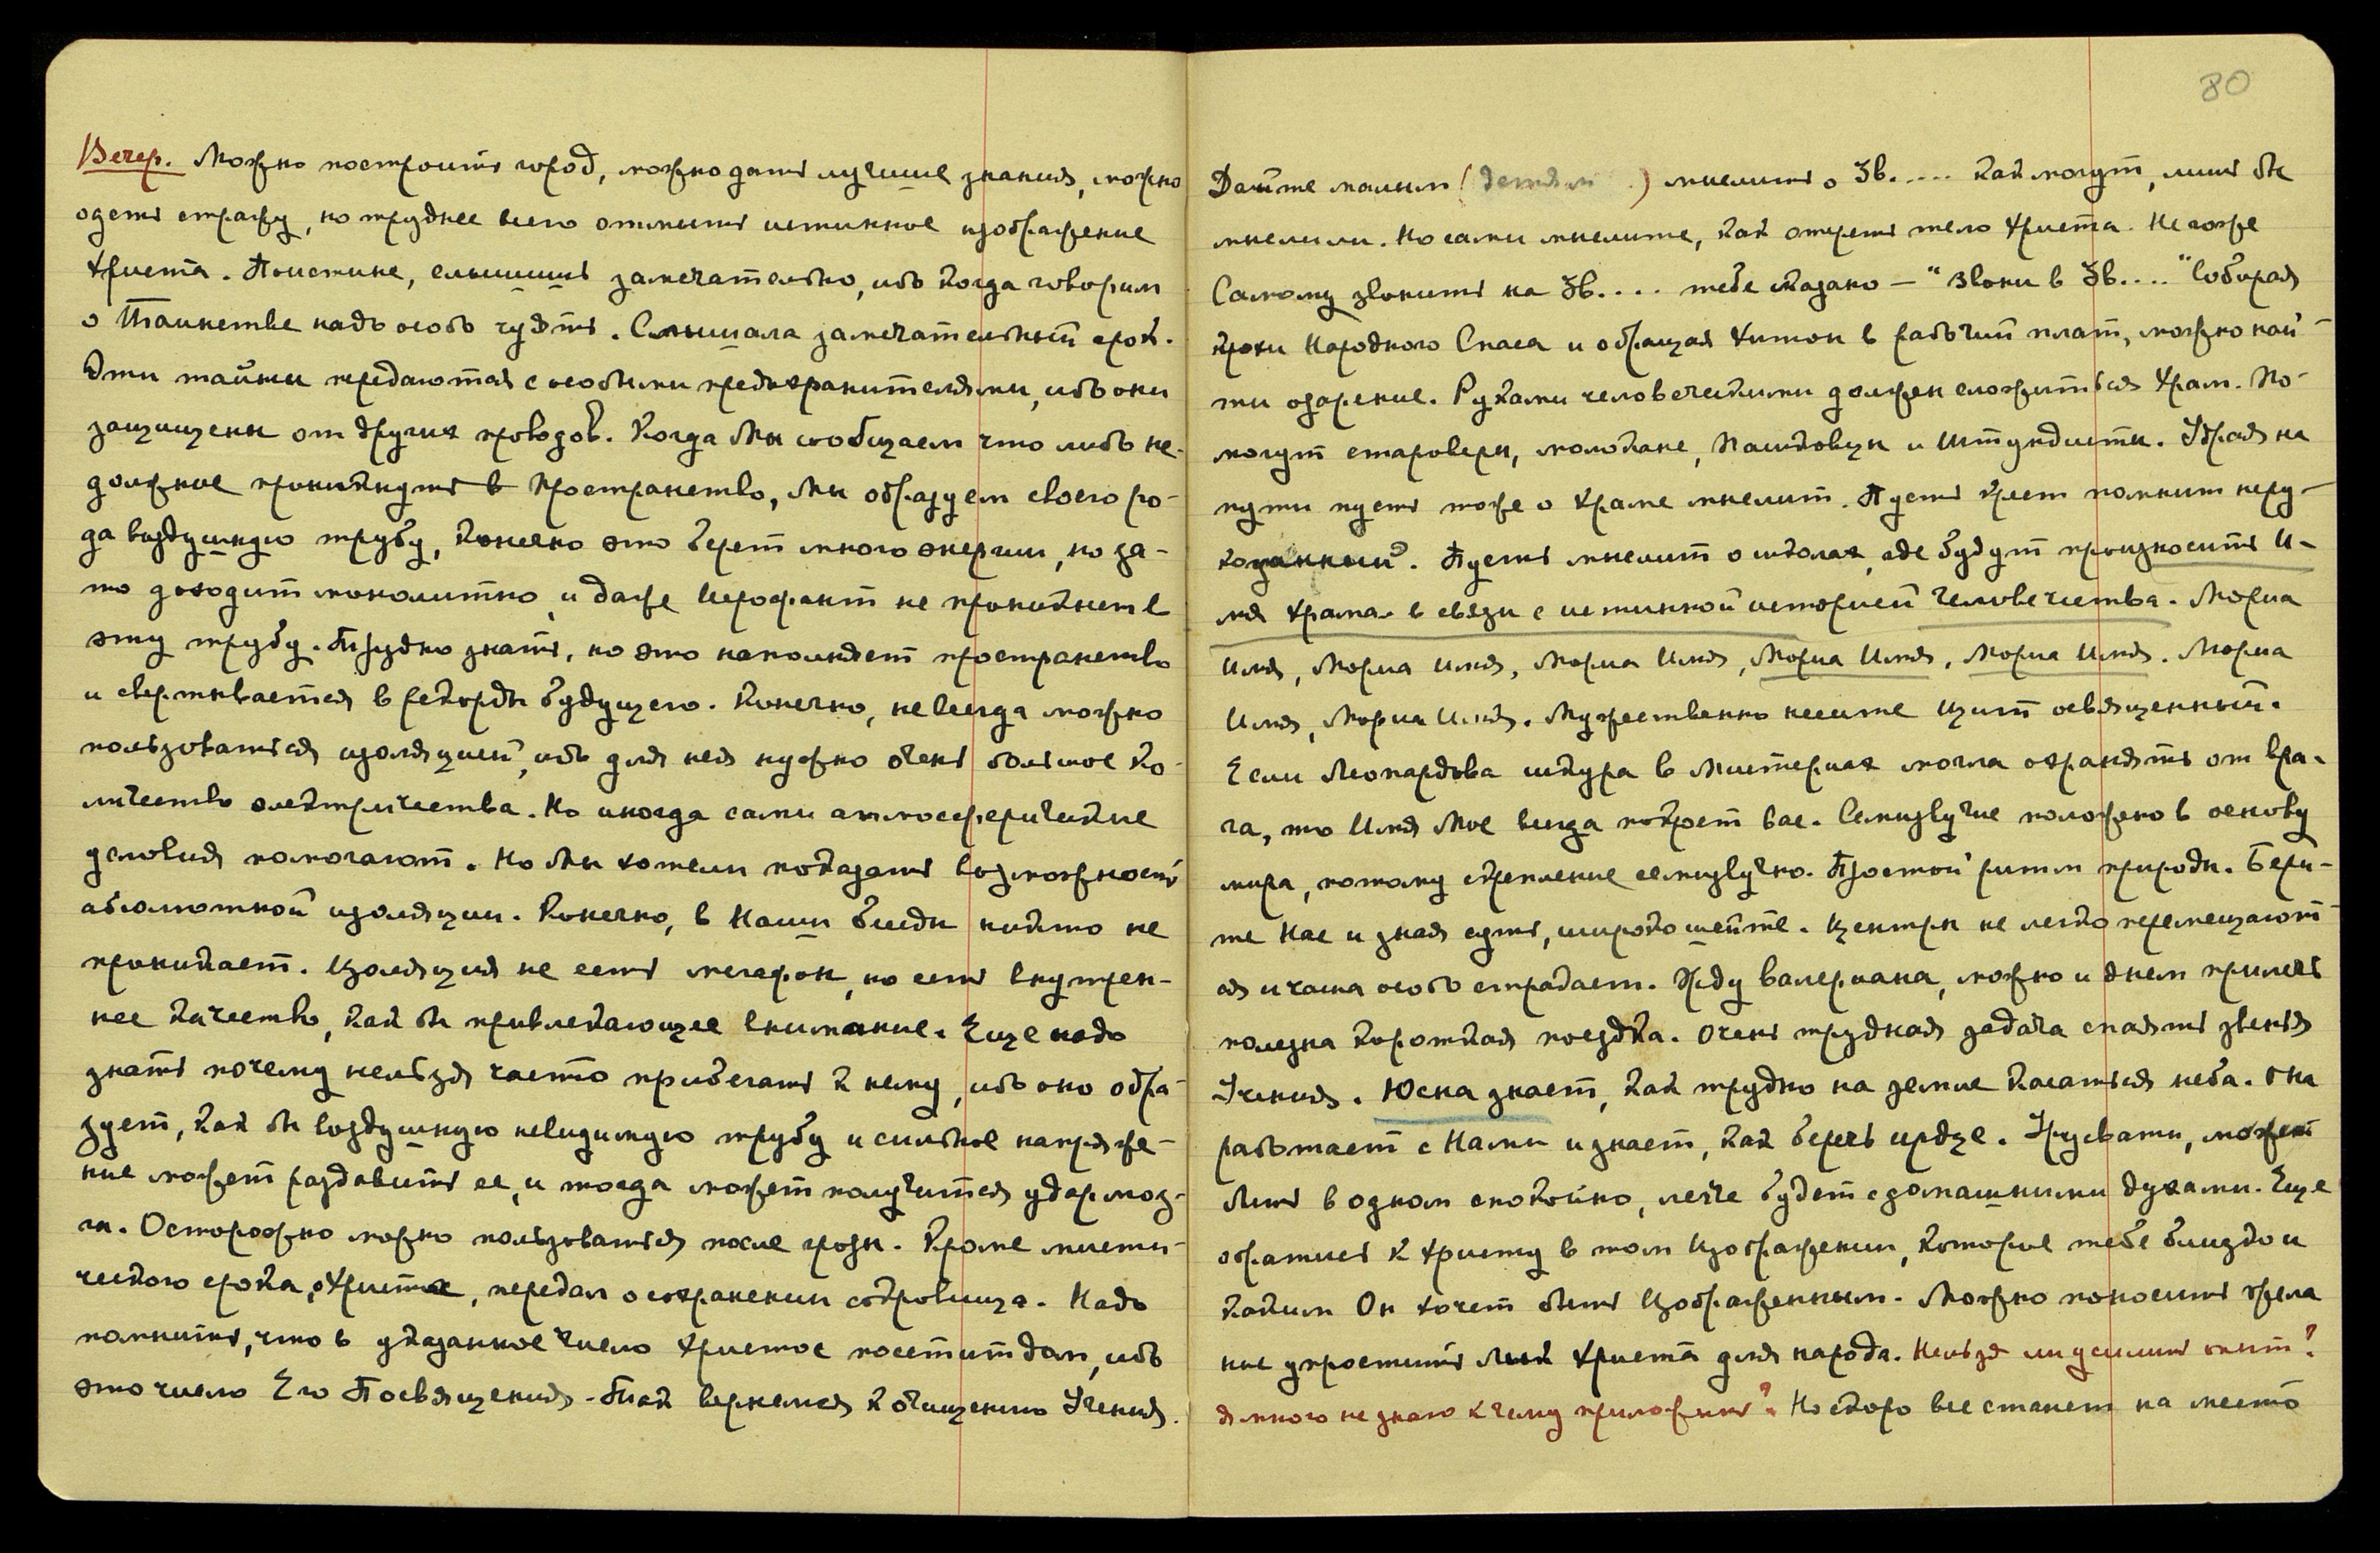 Вечер. Можно построить город, можно дать лучшие знания, можно
одеть стражу, но труднее всего отмыть истинное изображение
Христа. Поистине, слышишь замечательно, ибо когда говорим
о Таинстве надо особо чуять. Слышала замечательный срок.
Эти тайны передаются с особыми предохранителями, ибо они
защищены от других проводов. Когда Мы сообщаем что либо не-
должное проникнуть в Пространство, Мы образуем своего ро-
да воздушную трубу, конечно это берет много энергии, но за-
то доходит монолитно, и даже Иерофант не проникнет в
эту трубу. Трудно знать, но это наполняет пространство
и свертывается в рекорды будущего. Конечно, не всегда можно
пользоваться изоляцией, ибо для нея нужно очень большое ко-
личество электричества. Но иногда сами атмосферические
условия помогают. Но Мы хотели показать возможность
абсолютной изоляции. Конечно, в Наши беседы никто не
проникает. Изоляция не есть мегафон, но есть внутрен-
нее качество, как бы привлекающее внимание. Еще надо
знать почему нельзя часто прибегать к нему, ибо оно обра-
зует, как бы воздушную невидимую трубу и сильное напряже-
ние может раздавить ее, и тогда может получиться удар моз-
га. Осторожно можно пользоваться после грозы. Кроме мисти-
ческого срока, Христос, передал о сохранении сокровища. Надо
помнить, что в указанное число Христос посетит дом, ибо
это число Его Посвящения. Так вернемся к очищению Учения.
80
Дайте малым (детям) мыслить о Зв..... Как могут, лишь бы
мыслили. Но сами мыслите, как отереть тело Христа. Не гоже
Самому звонить на Зв.... тебе сказано — "Звони в Зв...." Собирая
крохи Народного Спаса и обращая хитон в рабочий плат, можно най-
ти озарение. Руками человеческими должен сложиться Храм. По-
могут староверы, молокане, Пашковцы и Штундисты. Удрая на
пути пусть тоже о храме мыслит. Пусть крест помнит неру-
козданный. Пусть мыслит о школах, где будут произносить И-
мя храма в связи с истинной историей человечества. Мория
Имя, Мория Имя, Мория Имя, Мория Имя, Мория Имя. Мория
Имя, Мория Имя. Мужественно несите щит освященный.
Если Леопардова шкура в Мистериях могла охранять от вра-
га, то Имя Мое всегда покроет вас. Семизвучие положено в основу
мира, потому скрепление семизвучно. Простой ритм природы. Бери-
те Нас и зная суть, широко шейте. Центры не легко перемещают-
ся и чаша особо страдает. Жду валериана, можно и днем прилечь
полезна короткая поездка. Очень трудная задача спаять звенья
Учения. Юсна знает, как трудно на земле касаться неба. Она
работает с Нами и знает, как беречь сердце. Урусвати, может
быть в одном спокойно, легче будет с домашними духами. Еще
обратись к Христу в том Изображении, которое тебе близко и
каким Он хочет быть Изображенным. Можно поносить жела
ние упростить Лик Христа для народа. Нельзя ли усилить опыт?
Я много не знаю к чему приложить? Но скоро все станет на место